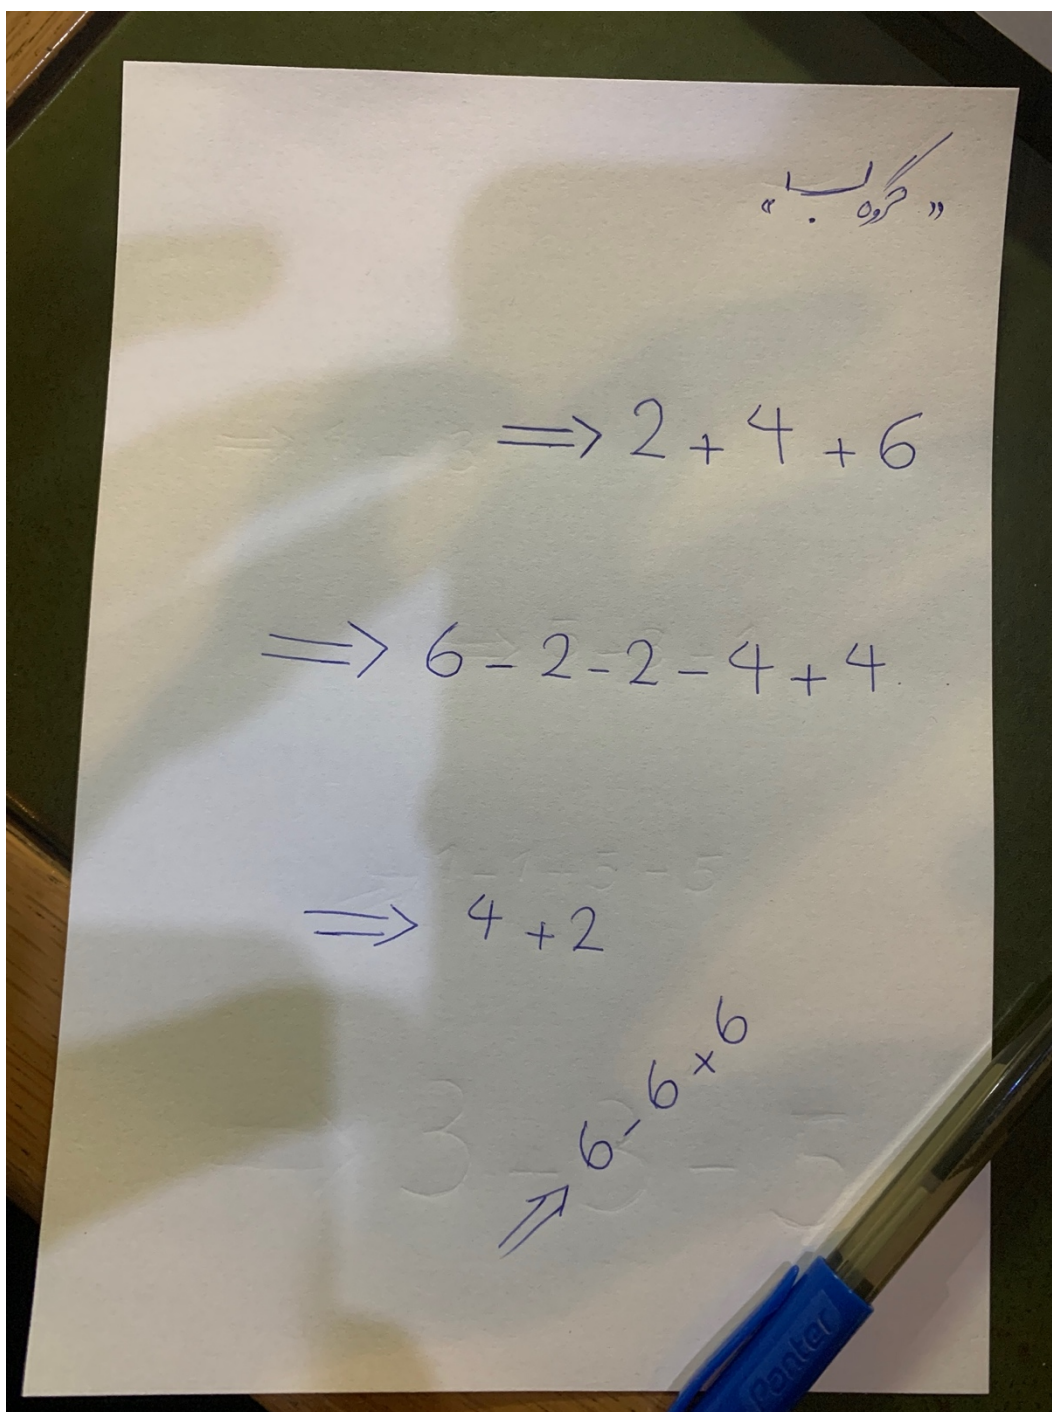 « گروه ب »
⇒ 2 + 4 + 6
⇒ 6 - 2 - 2 - 4 + 4
⇒ 4 + 2
⇒ 6 - 6 × 6
Panter